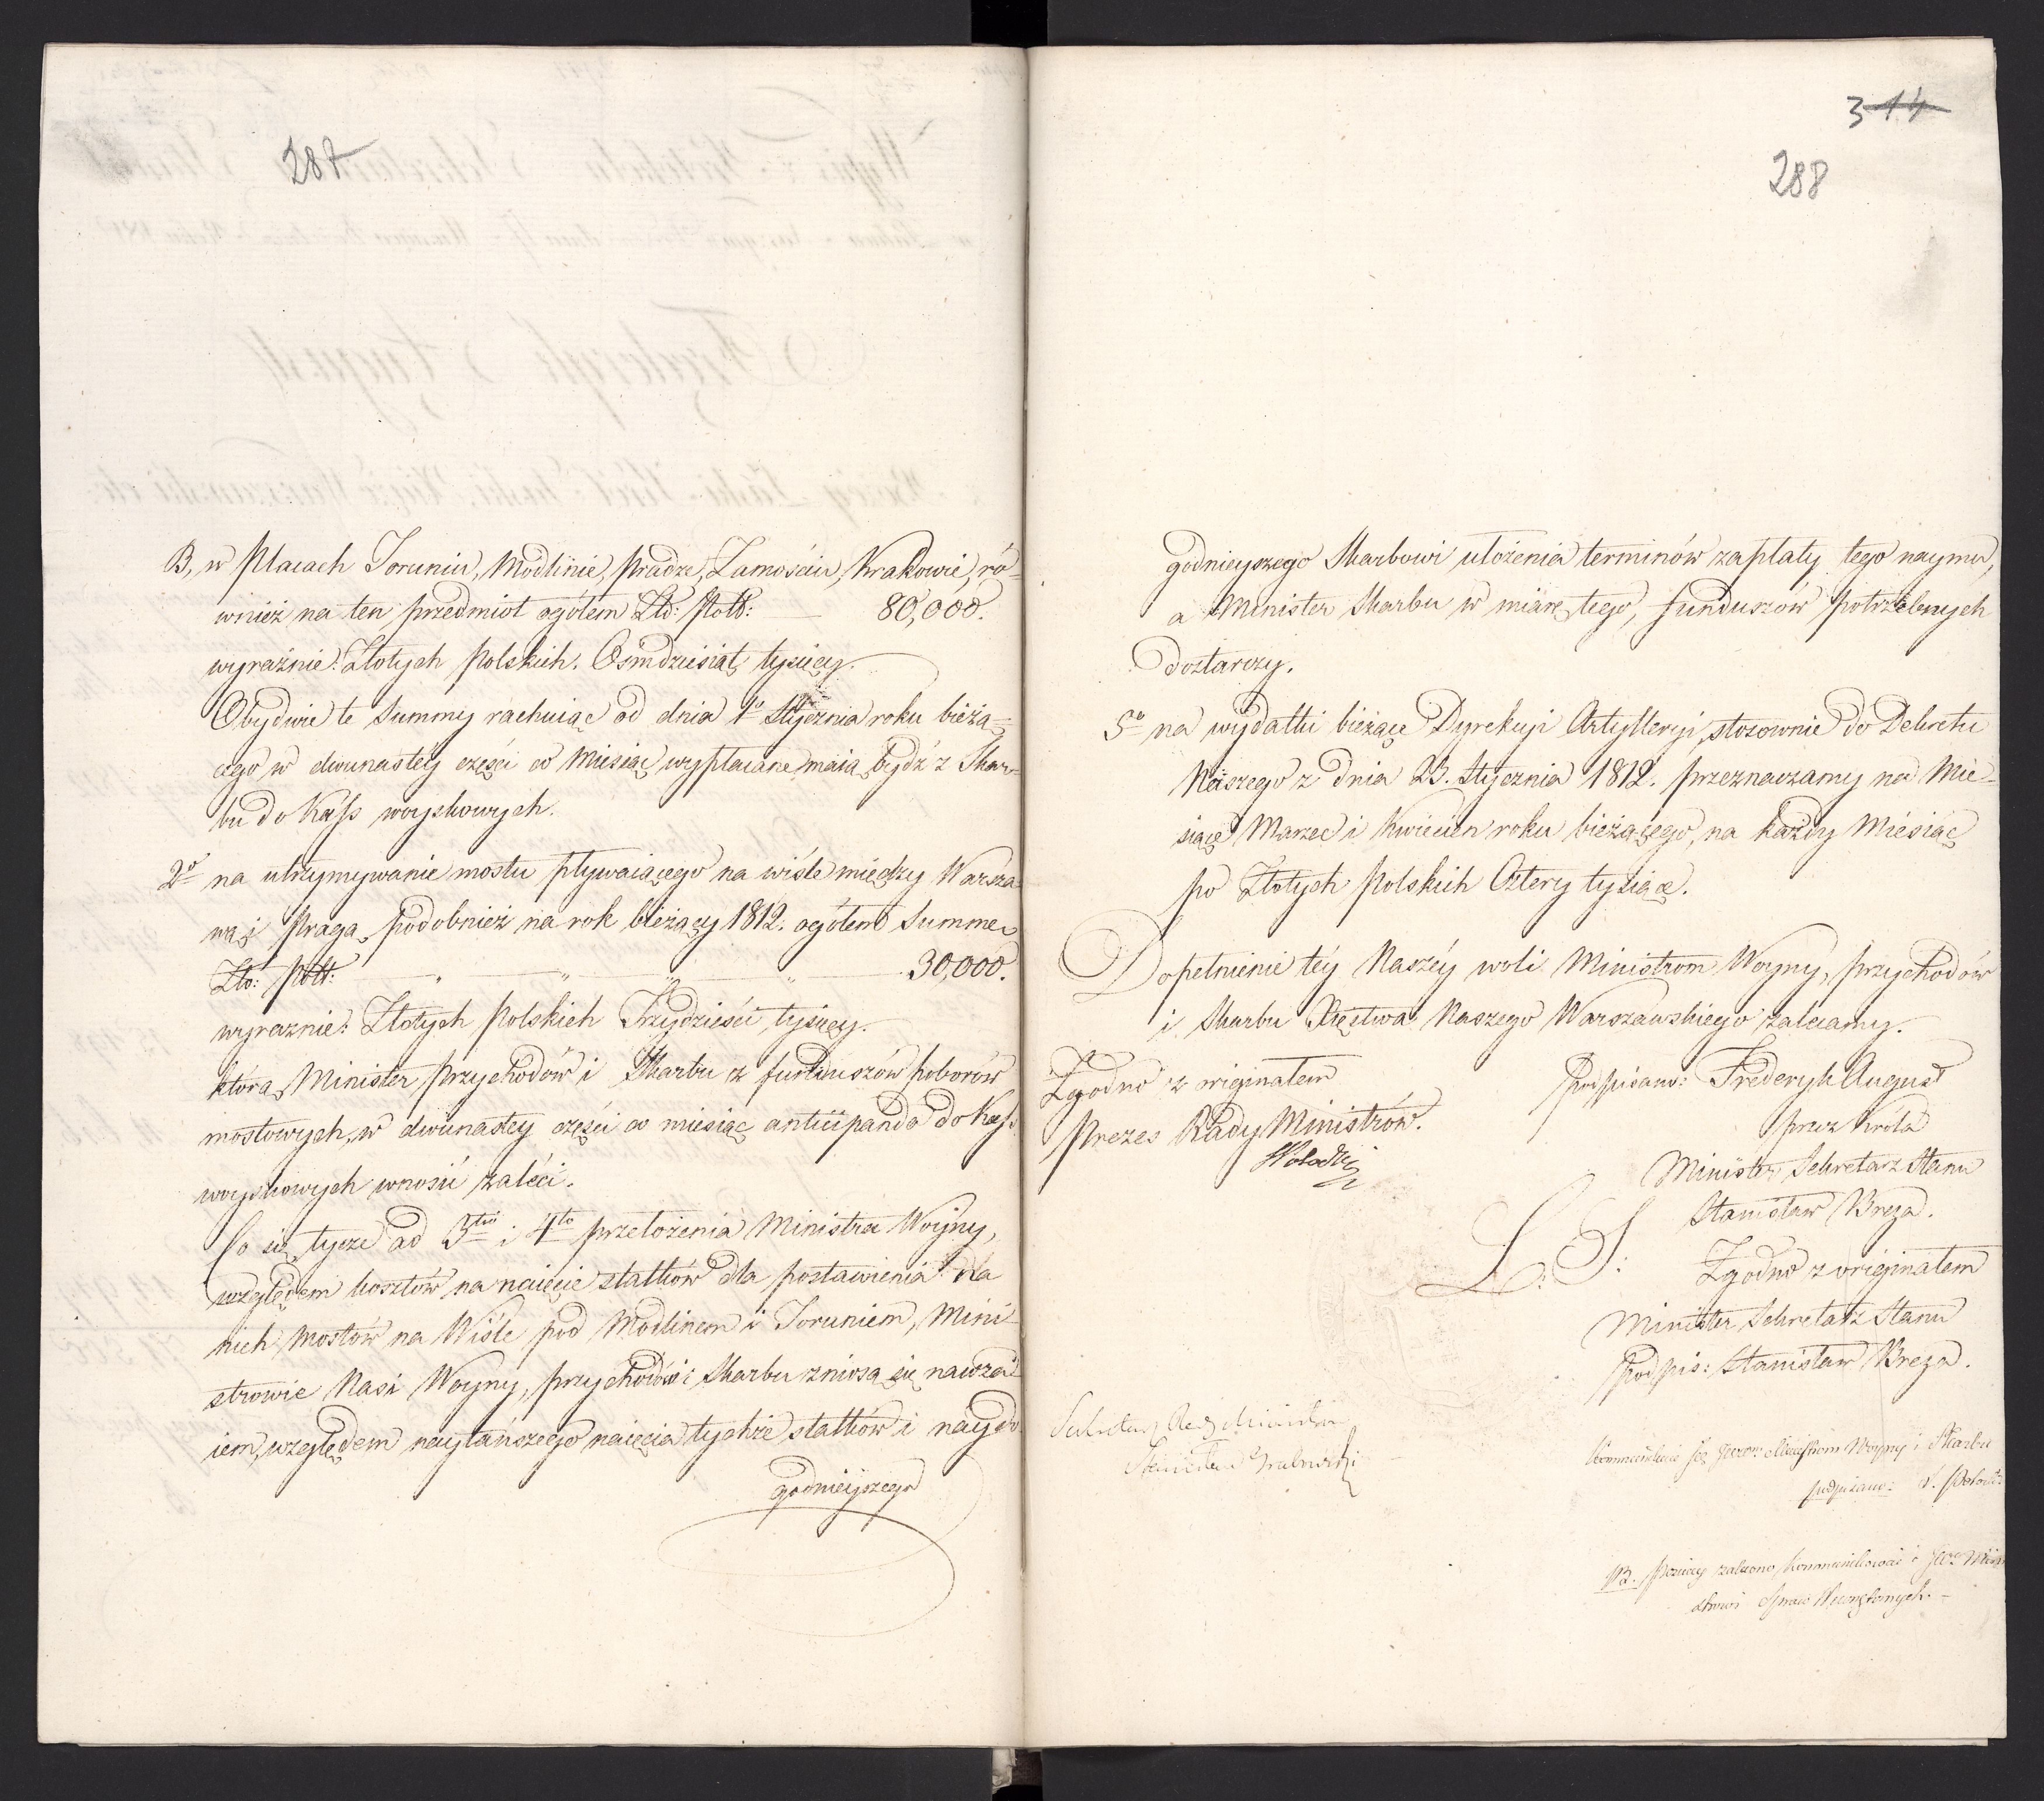 287
B, w Placach Toruniu, Modlinie, Pradze, Zamościu, Krakowie, ró-
wnież na ten przedmiot ogółem Zło: Polls: — 80,000.
wyraźnie: Złotych Polskich. Osmdziesiąt tysięcy.
Obydwie te Summy rachuiąc od dnia 1o Stycznia roku bieżą-
cego w dwunastéy części co Miesiąc wypłacane maią bydź z Skar-
bu do Kass woyskowych.
2o na utrzymywanie mostu pływaiącego na wiśle między Warsza-
wą i Pragą, podobnież na rok bieżący 1812. ogółem Summę
Zło: Polls: — „ — „ — „ — „ — 30,000.
wyraznie: Złotych Polskich Trzydzieści tysięcy.
którą Minister Przychodów i Skarbu z funduszów poborów
mostowych, w dwunastey części co miesiąc anticipando do Kass
woyskowych wnosić zaleci.
Co się tycze ad 3tio i 4to przełożenia Ministra Woyny,
względem kosztów na naięcie statków dla postawienia na
nich mostów na Wiśle pod Modlinem i Toruniem, Mini-
strowie Nasi Woyny, Przychodów i Skarbu zniosą się nawza-
iem, względem naytańszego naięcia tychże statków i naydo-
godnieyszego
3 14
288
godnieyszego Skarbowi ułożenia terminów zapłaty tego naymu,
a Minister Skarbu w miarę tego, funduszów potrzebnych
dostarczy.
5o na wydatki bieżące Dyrekcyi Artylleryi, stosownie do Dekretu
Naszego z dnia 23. Stycznia 1812. przeznaczamy na Mie-
siące Marzec i Kwiecień roku bieżącego, na każdy Miesiąc
po Złotych Polskich Cztery tysiące.
Dopełnienie téy Naszéy woli Ministrom Woyny, Przychodów
i Skarbu Xięstwa Naszego Warszawskiego zalecamy.
Zgodno z originałem
Prezes Rady Ministrów.
Podpisano: Frederyk August
przez Króla
Minister Sekretarz Stanu
Stanisław Breza.
L. S:
Zgodno z originałem
Minister Sekretarz Stanu
Podpis: Stanisław Breza.
Sekretarz Rady Ministrów
Stanisław Grabowski
Woyny i Skarbu
podpisano:
NB. zalecono kommunikować i JW. Mini-
strowi Spraw Wewnętrznych. —